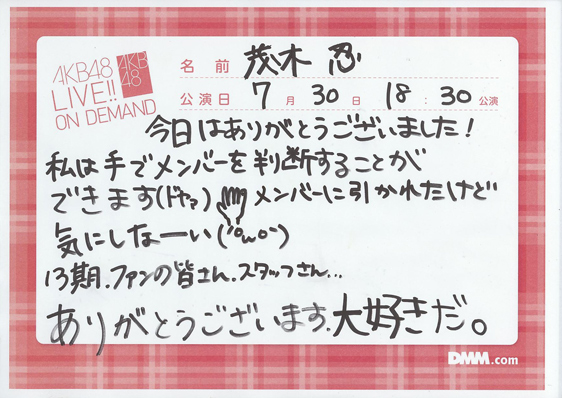 AKB48
LIVE!!
ON DEMAND
AKB
48
名前 茂木 忍
公演日 7月30日 18:30公演
今日はありがとうございました!
私は手でメンバーを判断することが
できます(ドヤァ) メンバーに引かれたけど
気にしなーい(^ω^)
13期.ファンの皆さん.スタッフさん...
ありがとうございます.大好きだ。
DMM.com